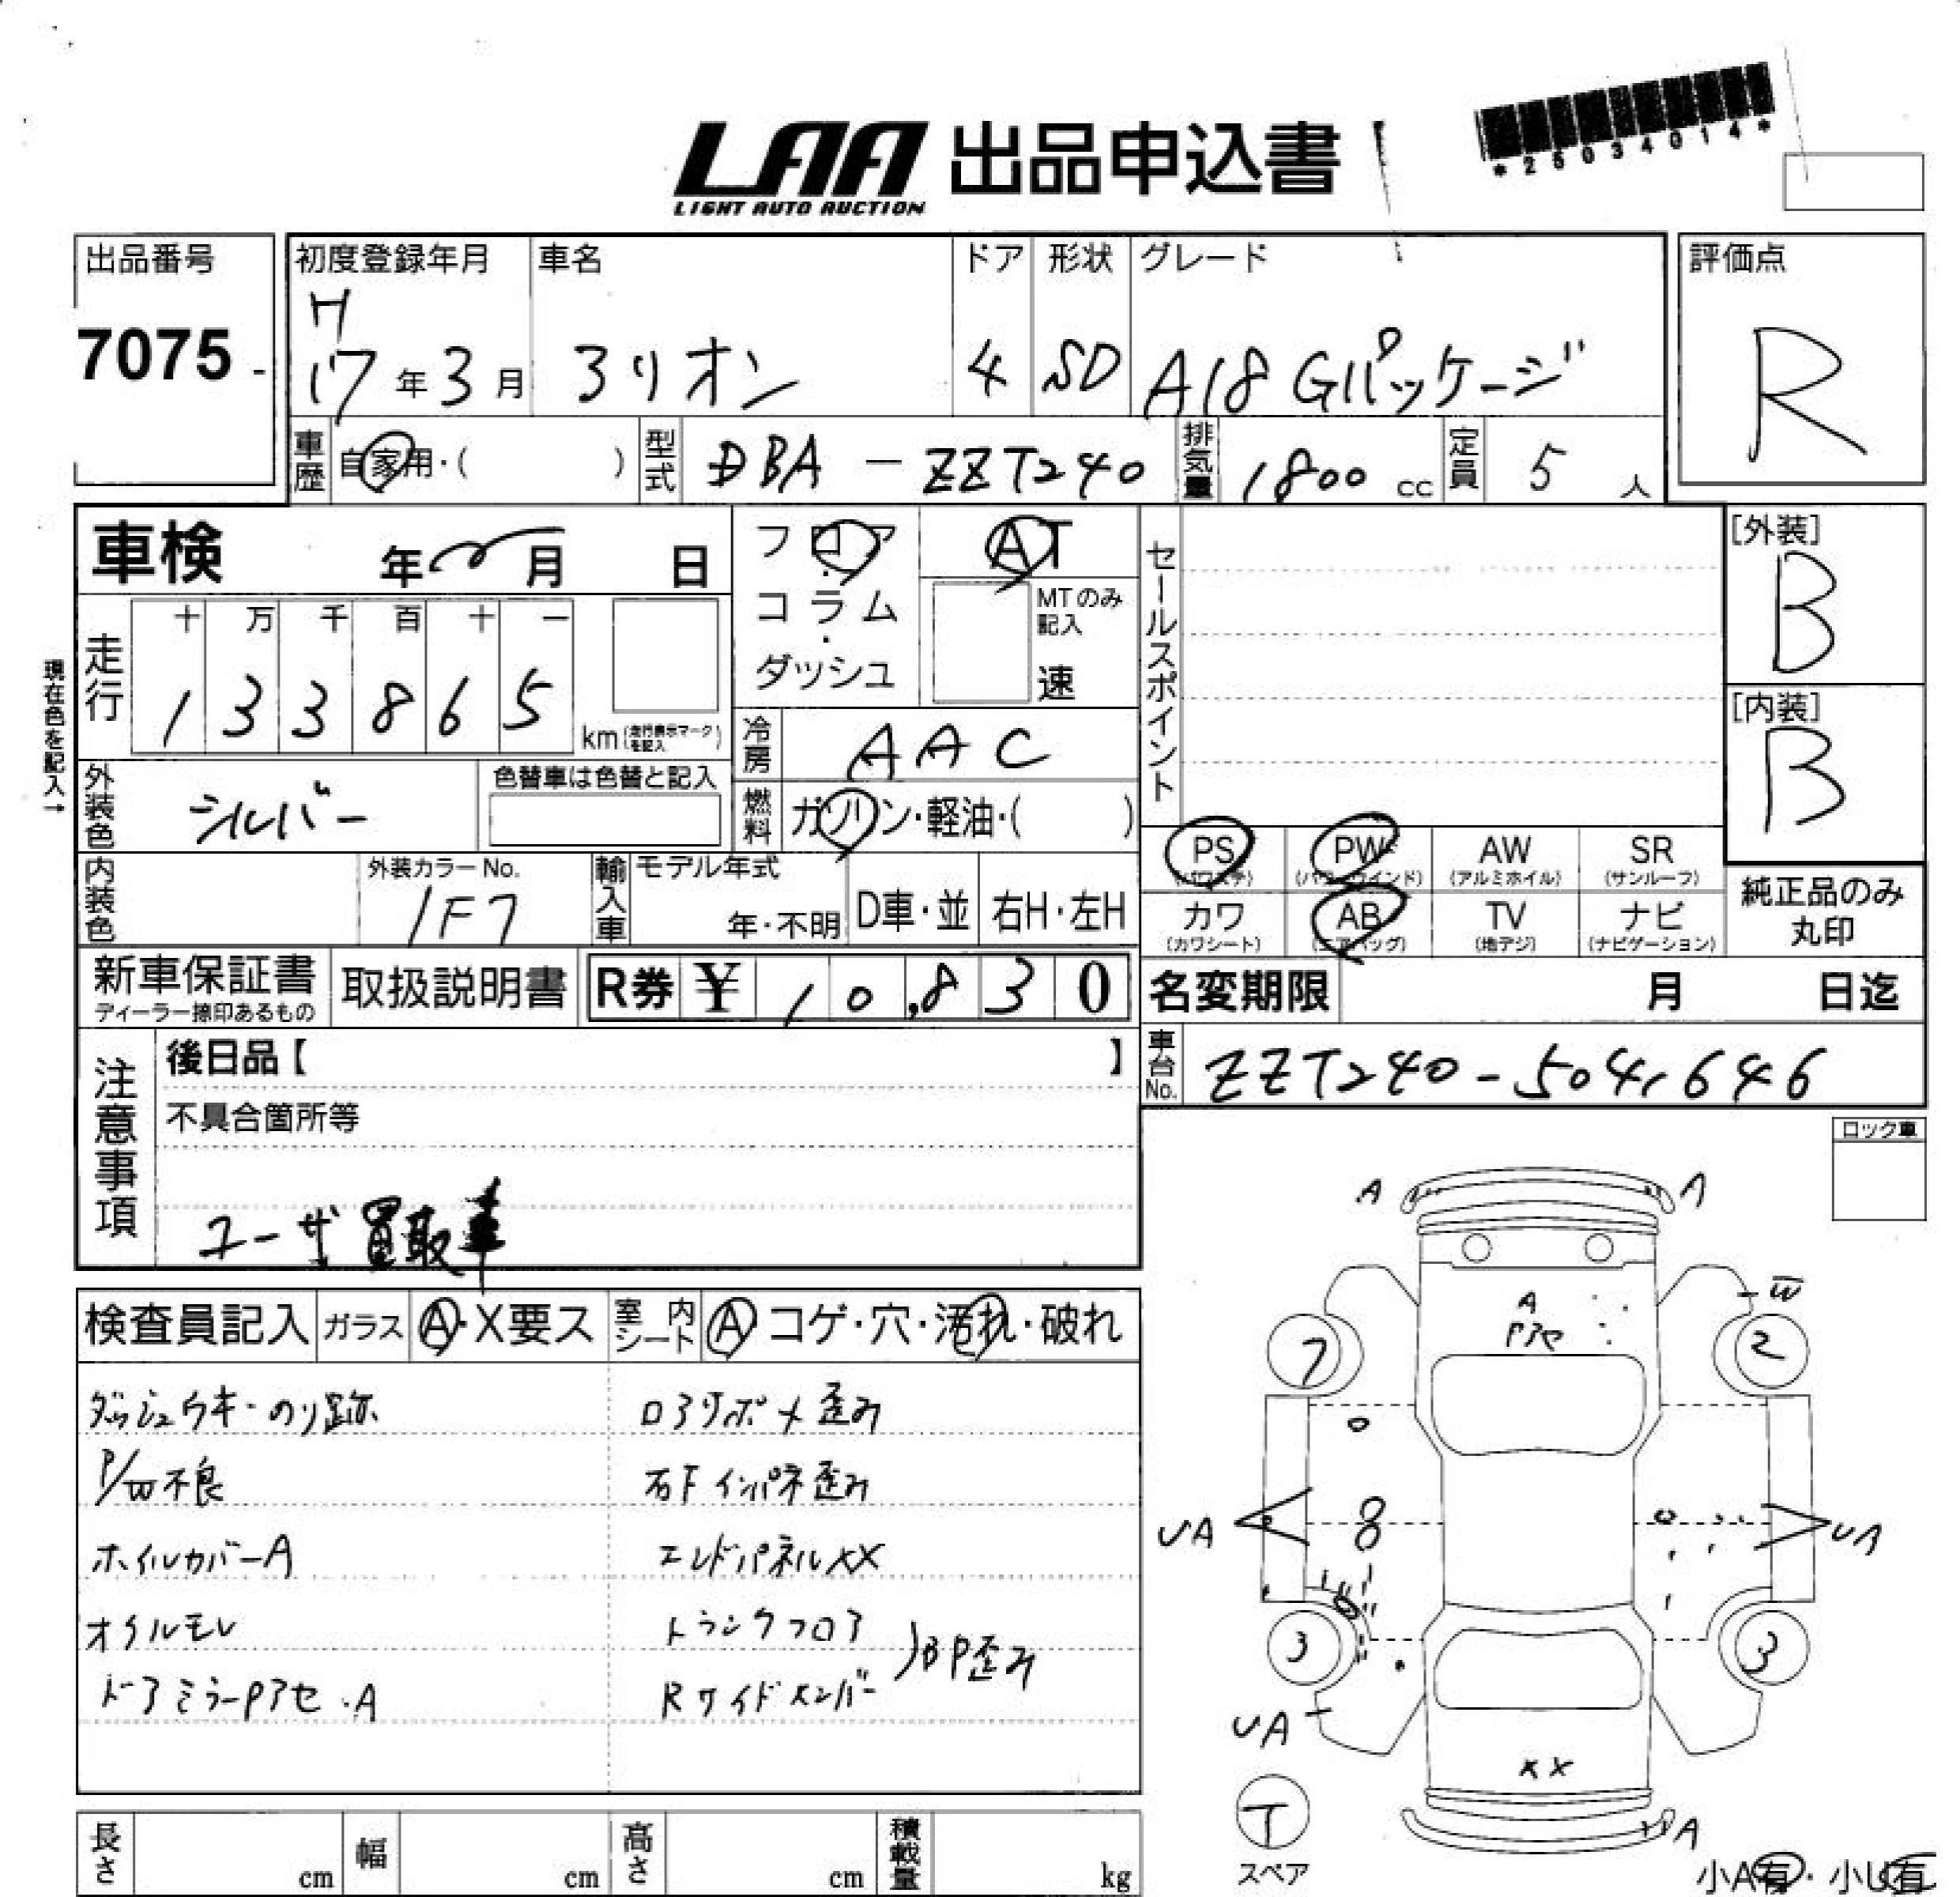 *25034014*
LAA 出品申込書
LIGHT AUTO AUCTION
出品番号 7075
初度登録年月 H17年3月
車名 アリオン
ドア 4
形状 SD
グレード A18 Gパッケージ
評価点 R
車歴 自家用・( )
型式 DBA-ZZT240
排気量 1800cc
定員 5人
車検 年 月 日
フロア・コラム・ダッシュ
AT
MTのみ記入 速
セールスポイント
[外装] B
[内装] B
現在色を記入→
走行 十万千百十一
133865 km(走行表示マークを記入)
冷房 AAC
外装色 シルバー
色替車は色替と記入
燃料 ガソリン・軽油・( )
PS(パワステ) PW(パワーウインド) AW(アルミホイル) SR(サンルーフ)
カワ(カワシート) AB(エアバッグ) TV(地デジ) ナビ(ナビゲーション)
純正品のみ丸印
内装色
外装カラーNo. 1F7
輸入車 モデル年式 年・不明 D車・並 右H・左H
新車保証書 ディーラー捺印あるもの
取扱説明書
R券 ¥10,830
名変期限 月 日迄
車台No. ZZT240-5041646
注意事項
後日品【 】
不具合箇所等
ユーザ買取車
ロック車
検査員記入 ガラス A・X要ス 室内シート A コゲ・穴・汚れ・破れ
ダッシュウキ・のり跡
P/W不良
ホイルカバーA
オイルモレ
ドアミラーPアセ・A
ロアサポメ歪み
右Fインパネ歪み
エンドパネルXX
トランクフロア
Rサイドメンバー
BP歪み
A A
W
A
Pアセ
7 2
UA UA
3 3
UA
XX
T
スペア
A
小A有・小U有
長さ cm 幅 cm 高さ cm 積載量 kg